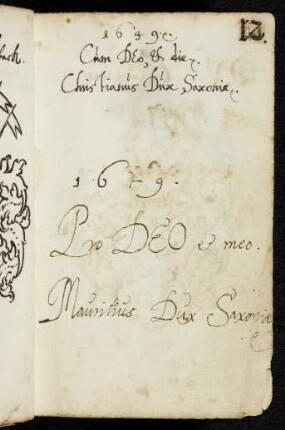 12.
1649.
Cum Deo, & die.
Christianus Dux Saxoniæ.
1.6.4.9.
Pro DEO e meo.
Mauritius Dux Saxoniæ